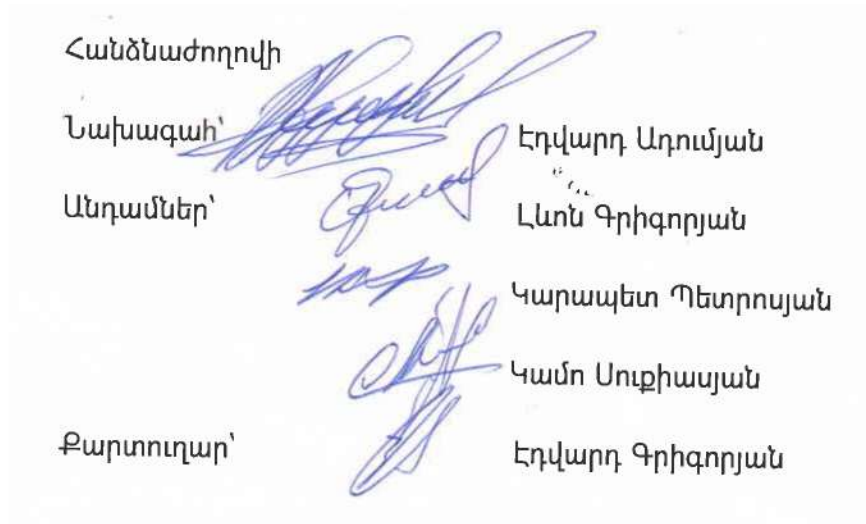 Հանձնաժողովի
Նախագահ՝ Էդվարդ Ադումյան
Անդամներ՝ Լևոն Գրիգորյան
Կարապետ Պետրոսյան
Կամո Սուքիասյան
Քարտուղար՝ Էդվարդ Գրիգորյան